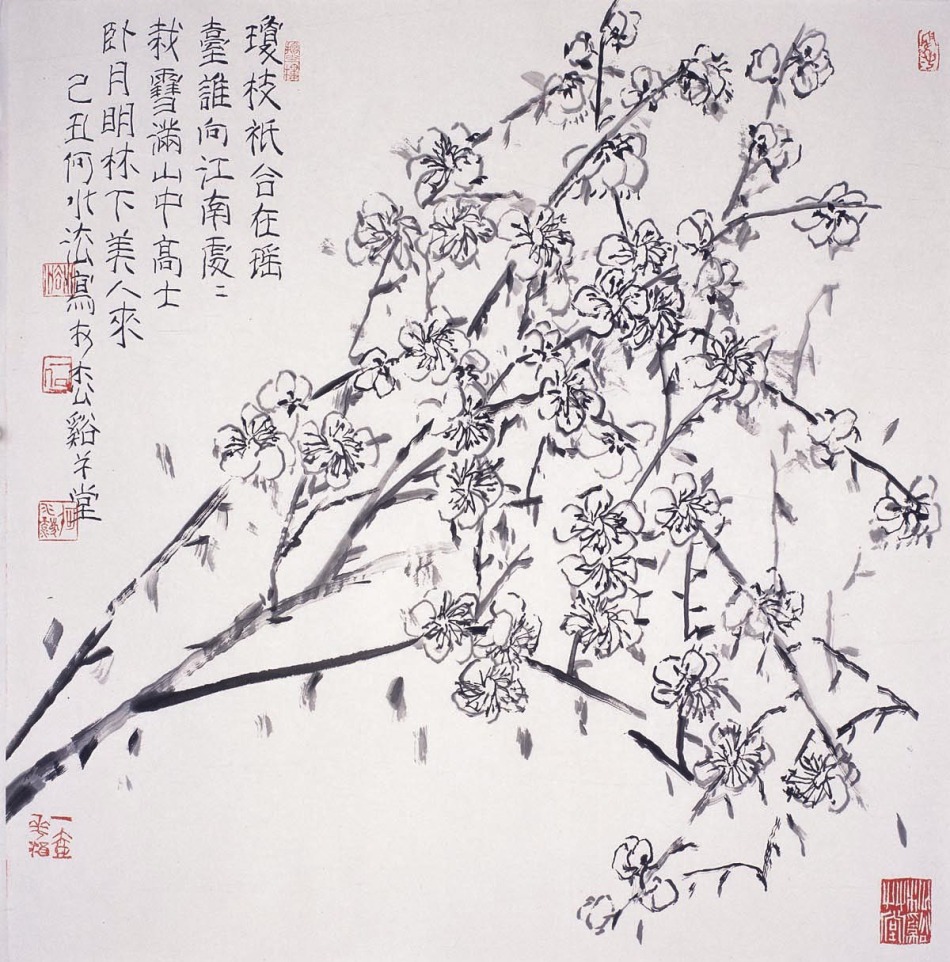 瓊枝祇合在瑶
臺誰向江南處〻
栽雪滿山中高士
卧月明林下美人來
己丑何水法寫於松谿草堂
松谿草堂